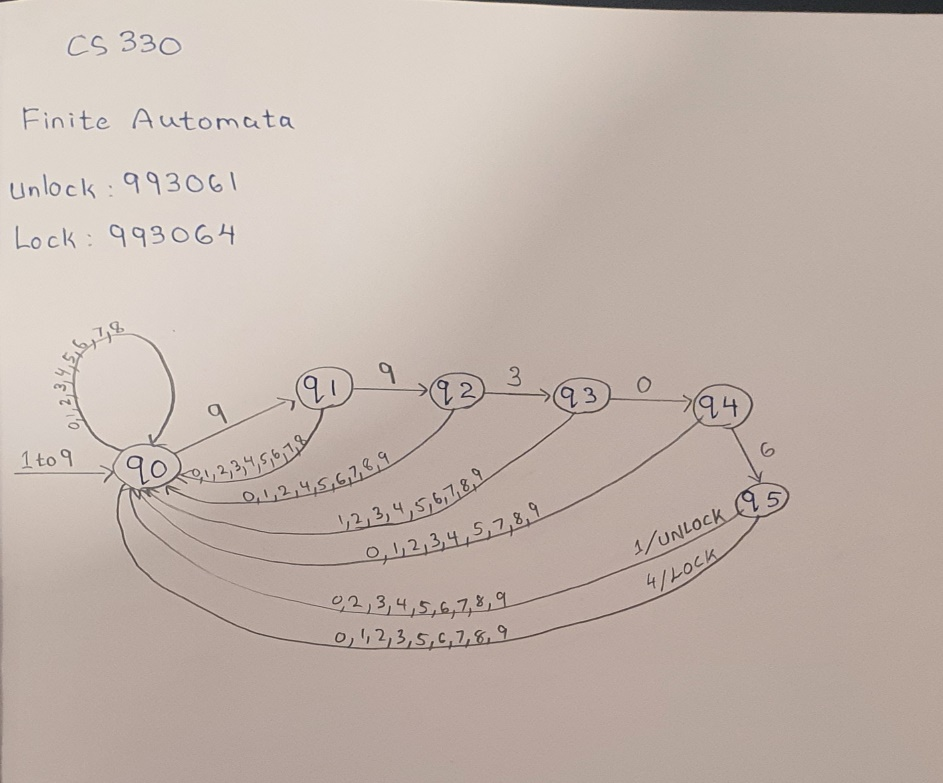 CS 330
Finite Automata
Unlock: 993061
Lock: 993064
0,1,2,3,4,5,6,7,8
9
q1
9
q2
3
q3
0
q4
6
q5
1 to 9
q0
0,1,2,3,4,5,6,7,8
0,1,2,4,5,6,7,8,9
1,2,3,4,5,6,7,8,9
0,1,2,3,4,5,7,8,9
1/UNLOCK
4/LOCK
0,2,3,4,5,6,7,8,9
0,1,2,3,5,6,7,8,9